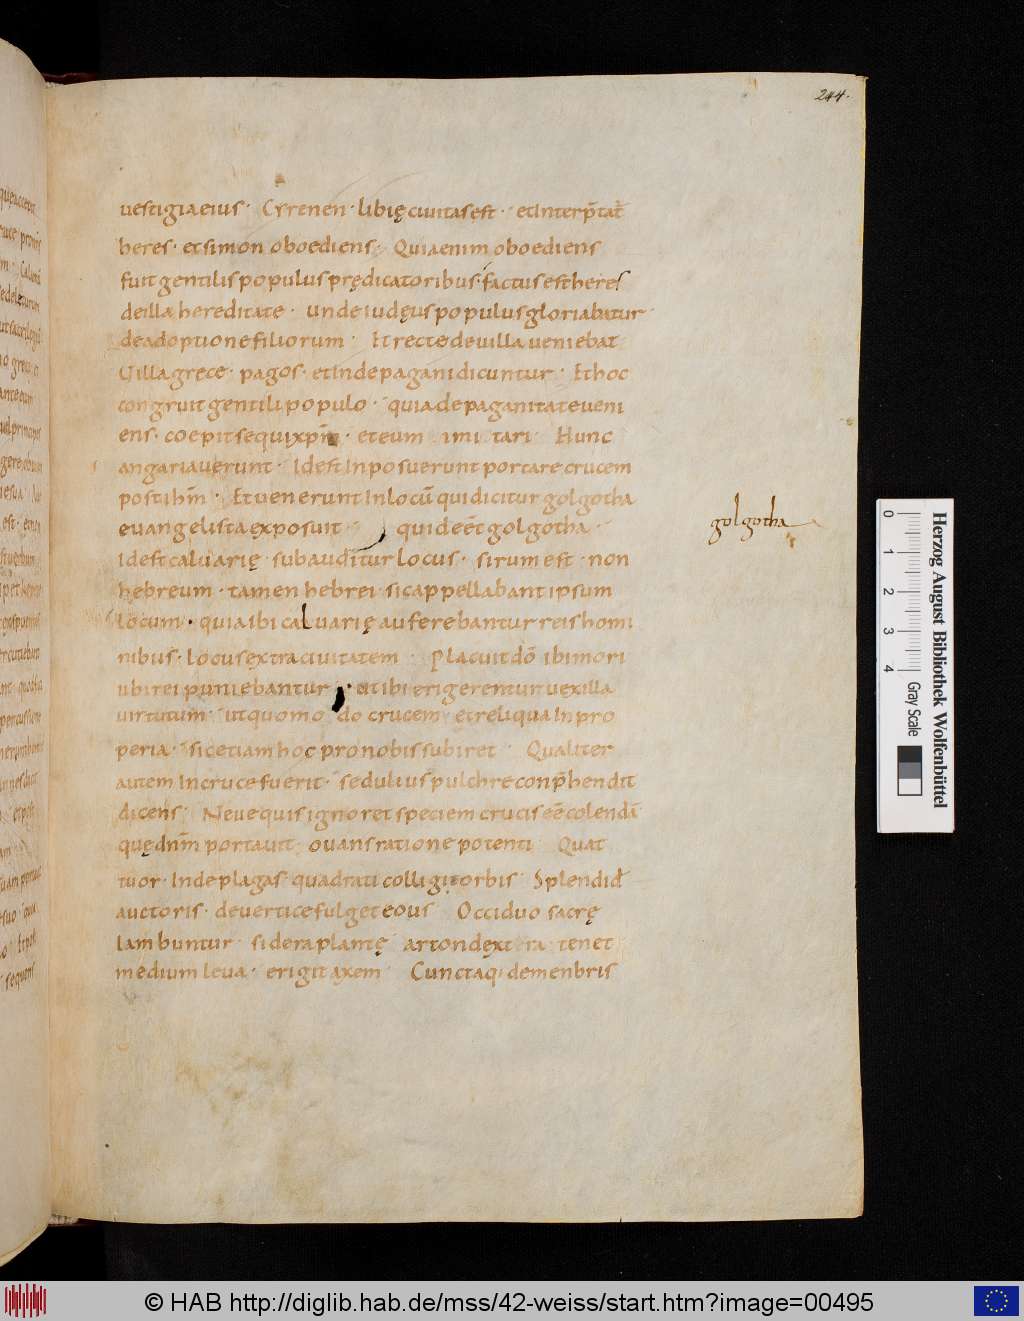 244.
uestigia eius · Cyrenen · libię ciuitas est · et interp̄tat̄
heres · et simon oboediens · Quia enim oboediens
fuit gentilis populus prędicatoribus · factus est heres
de illa hereditate · unde iudęus populus gloriabatur
de adoptione filiorum · Et recte de uilla ueniebat
Uilla gręce · pagos · et inde pagani dicuntur · Et hoc
congruit gentili populo · quia de paganitate ueni
ens · coepit sequi xp̄m · et eum imitari Hunc
angariauerunt · Id est inposuerunt portare crucem
post ih̄m · Et uenerunt in locū qui dicitur golgotha
euangelista exposuit quid eēt golgotha ·
golgotha
Id est caluarię · subauditur locus · sirum est · non
hebreum · tamen hebrei sic appellabant ipsum
locum · quia ibi caluarię auferebantur reis homi
nibus · Locus extra ciuitatem Placuit dō ibi mori
ubi rei puniebantur · ut ibi erigerentur uexilla
uirtutum · ut quomodo crucem et reliqua inpro
peria · sic etiam hoc pro nobis subiret · Qualiter
autem in cruce fuerit · sedulius pulchre conp̄hendit
dicens Neue quis ignoret speciem crucis eē colendā
quę dn̄m portauit · ouans ratione potenti Quat
tuor · Inde plagas quadrati colligit orbis Splendid
auctoris · de uertice fulget eous Occiduo sacrę
lambuntur sidera plantę arton dextra tenet
medium leua · erigit axem Cuncta qi de menbris
Herzog August Bibliothek Wolfenbüttel
0 1 2 3 4
Gray Scale
© HAB http://diglib.hab.de/mss/42-weiss/start.htm?image=00495